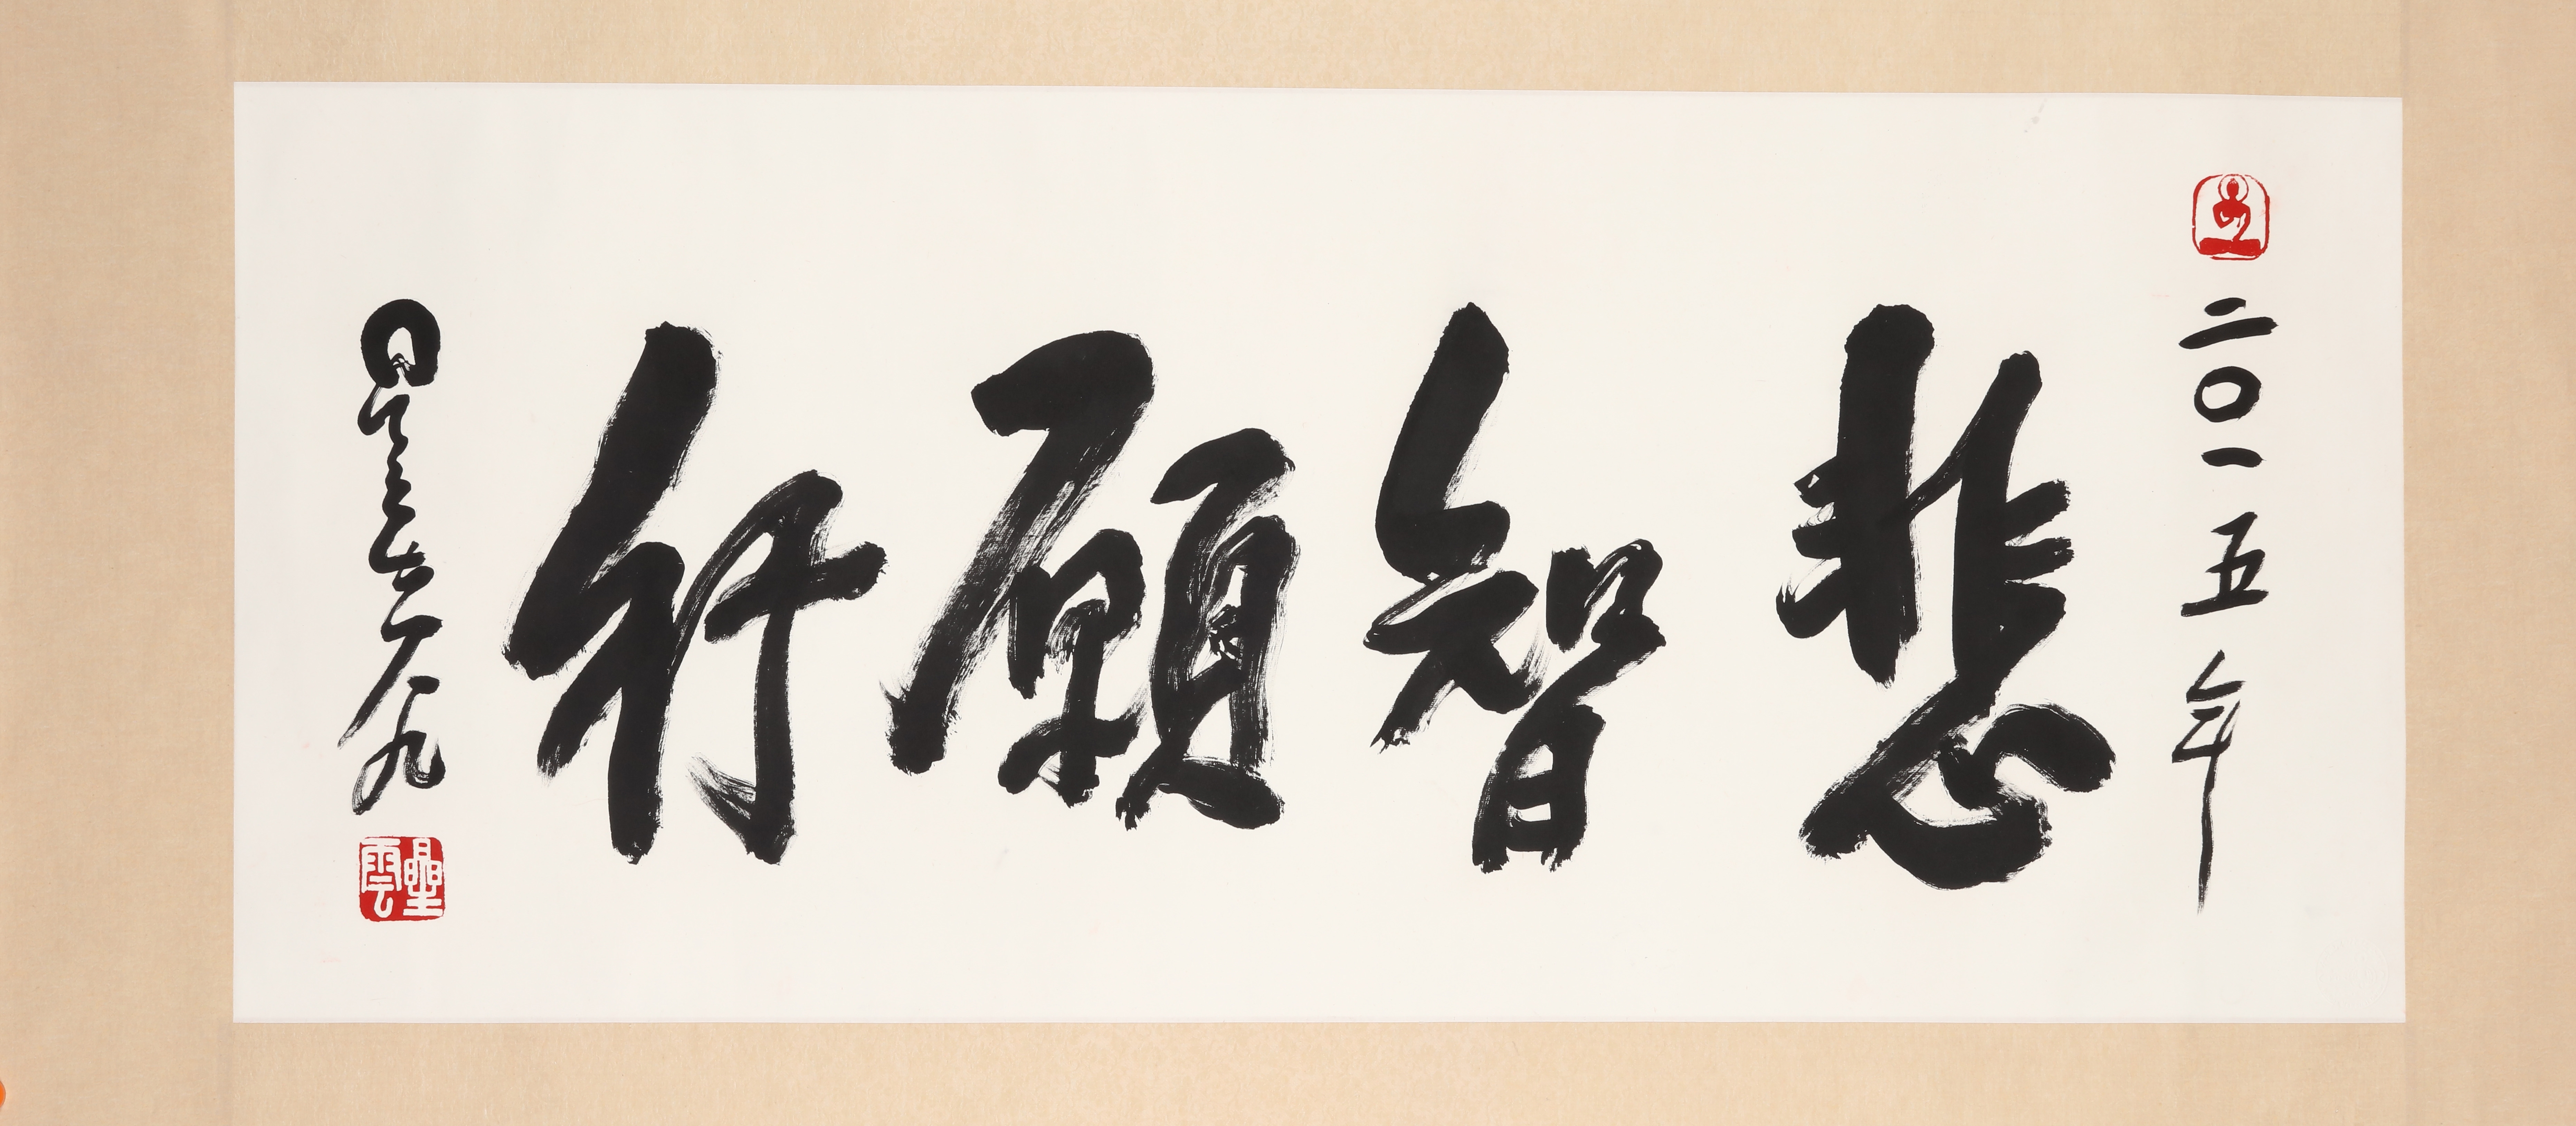 二〇一五年
悲智願行
星雲八九
星雲